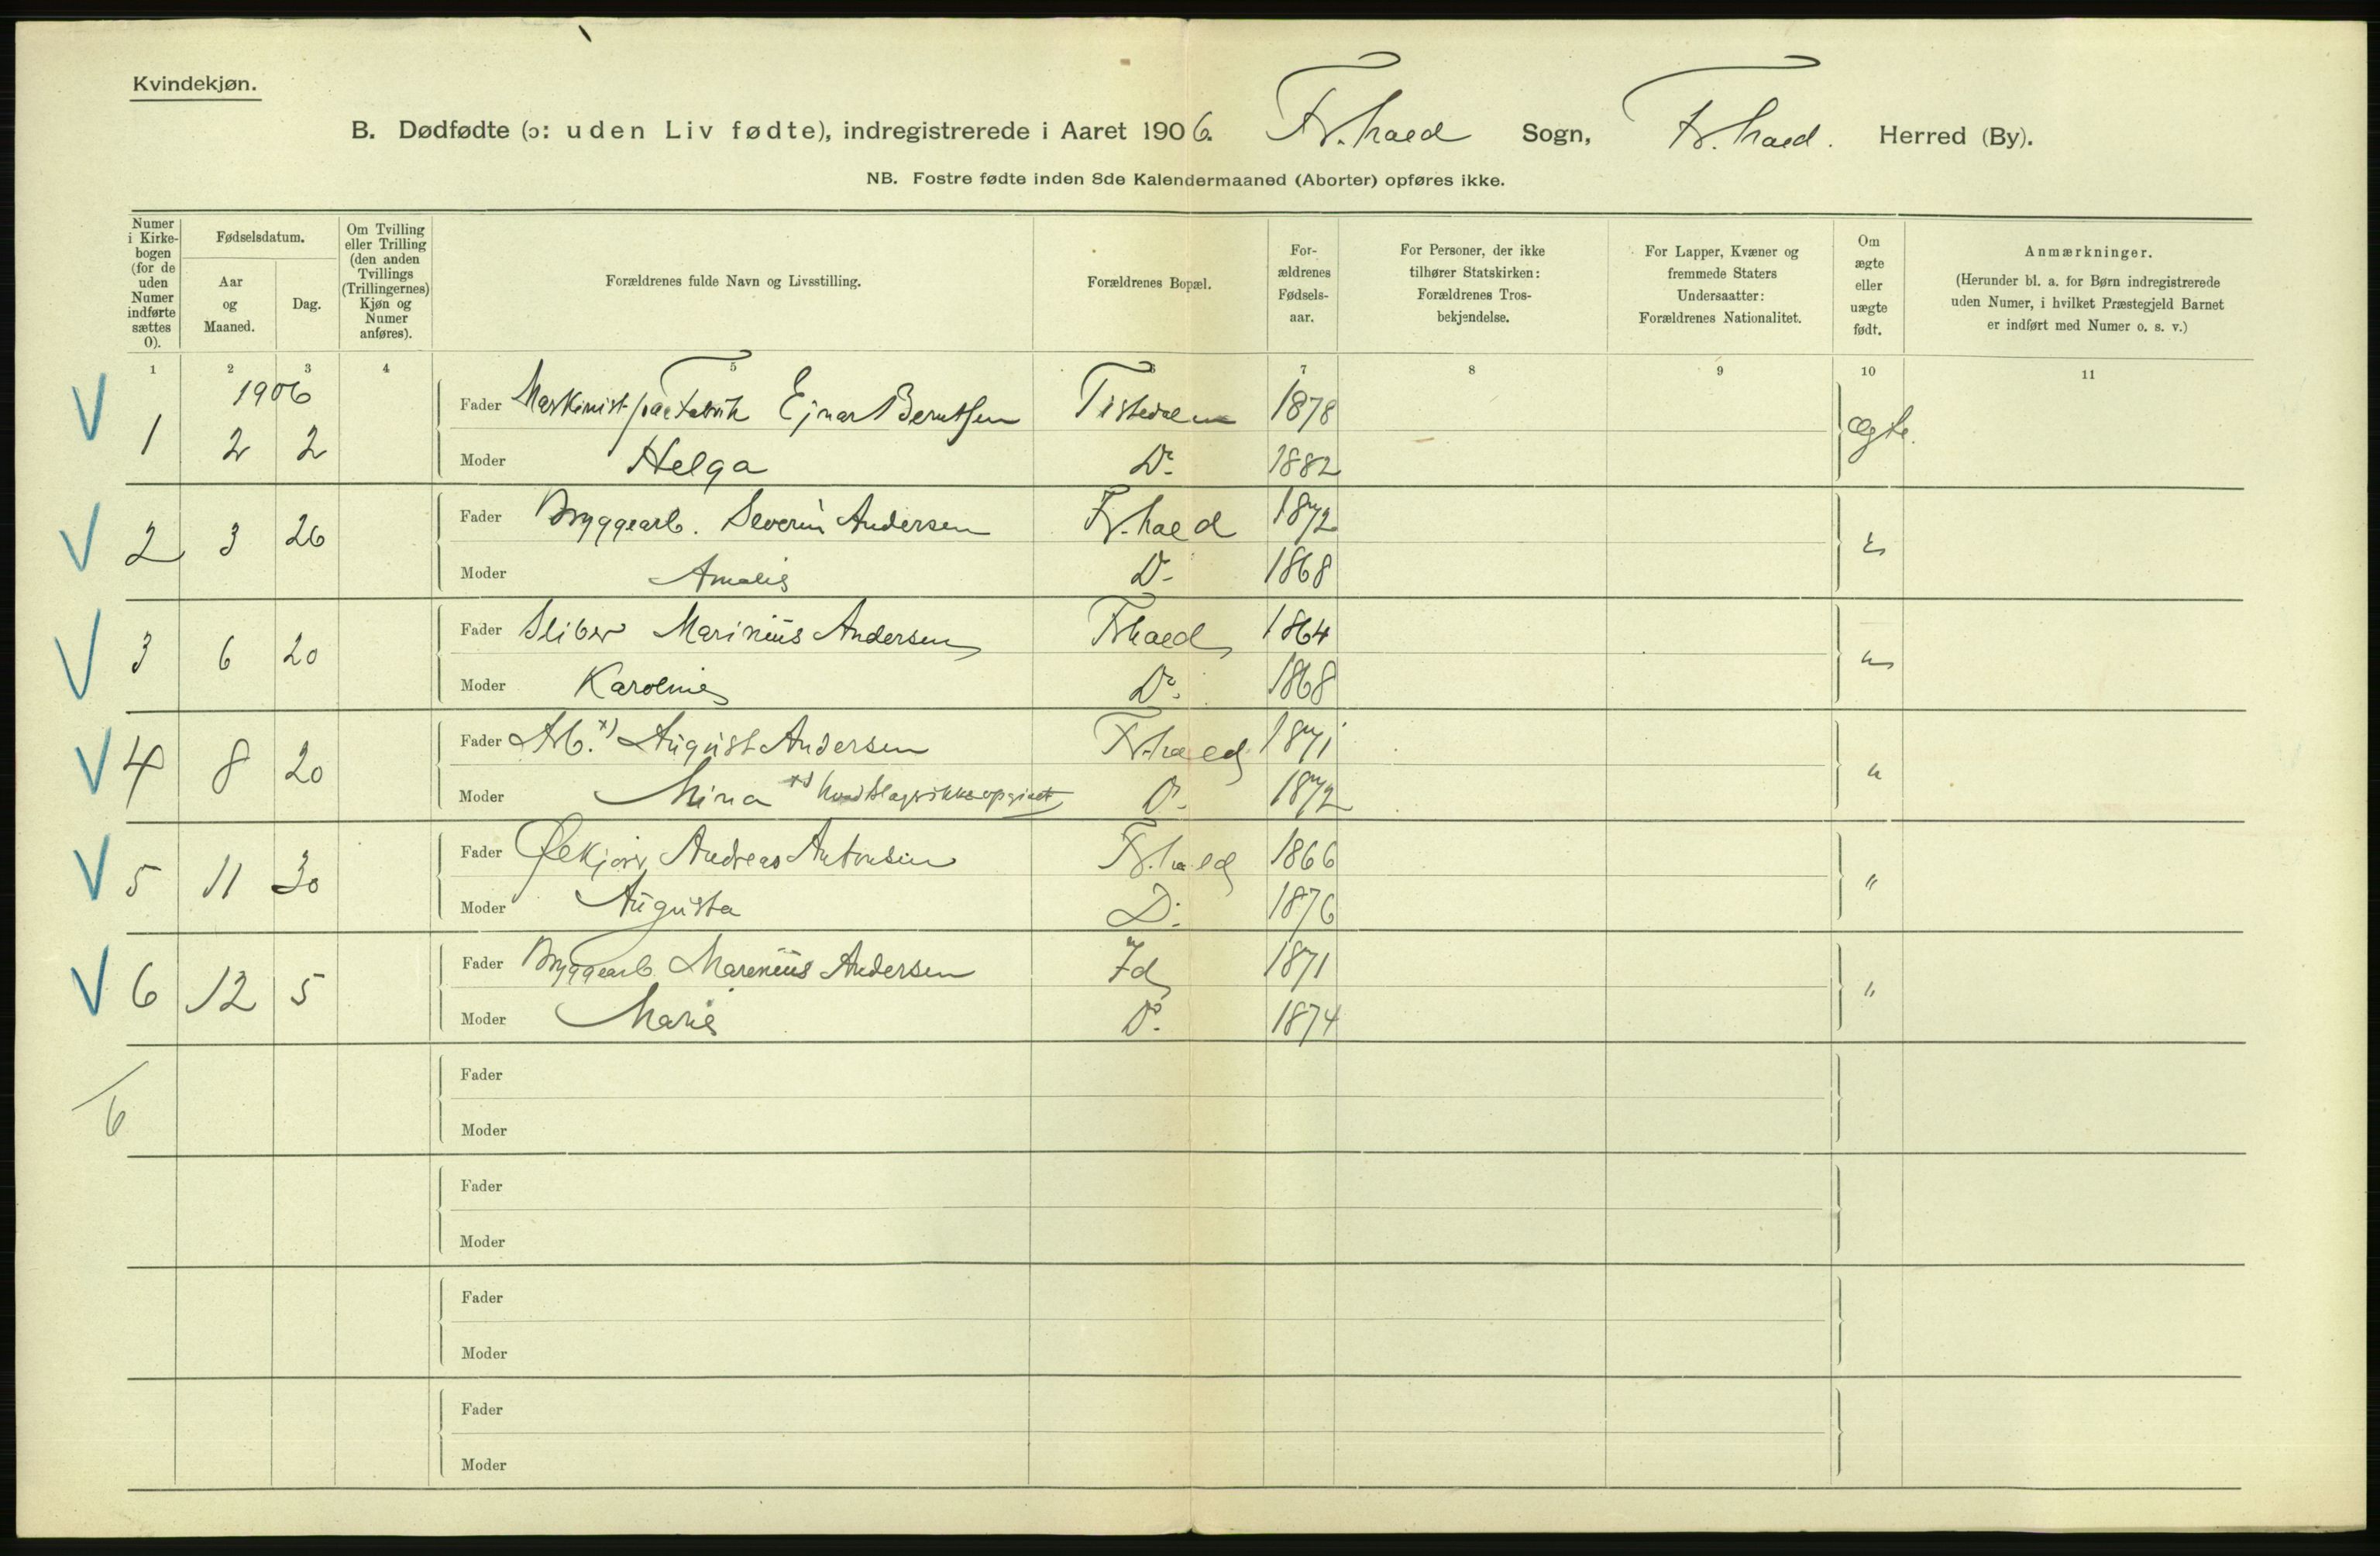 Kvindekjøn.
B. Dødfødte (ɔ: uden Liv fødte), indregistrerede i Aaret 1906. Fr.hald Sogn, Fr.hald. Herred (By).
NB. Fostre fødte inden 8de Kalendermaaned (Aborter) opføres ikke.
Numer i Kirkebogen (for de uden Numer indførte sættes 0).
Fødselsdatum.
Aar og Maaned.
Dag.
Om Tvilling eller Trilling (den anden Tvillings (Trillingernes) Kjøn og Numer anføres).
Forældrenes fulde Navn og Livsstilling.
Forældrenes Bopæl.
Forældrenes Fødselsaar.
For Personer, der ikke tilhører Statskirken: Forældrenes Trosbekjendelse.
For Lapper, Kvæner og fremmede Staters Undersaatter: Forældrenes Nationalitet.
Om ægte eller uægte født.
Anmærkninger.
(Herunder bl. a. for Børn indregistrerede uden Numer, i hvilket Præstegjeld Barnet er indført med Numer o. s. v.)
1 2 3 4 5 6 7 8 9 10 11
1906
1 2 2 Fader Maskinist paa Fabrik Ejnar Berntsen Tistedalen 1878 ægte.
Moder Helga Do. 1882
2 3 26 Fader Bryggearb. Severin Andersen Fr.hald 1872 "
Moder Amalie Do. 1868
3 6 20 Fader Sliber Marinius Andersen Frhald 1864 "
Moder Karoline Do. 1868
4 8 20 Fader Arb. x) August Andersen Fr.hald 1871 "
Moder Mina x) hvad Slags ikke opgivet Do. 1872
5 11 30 Fader Andreas Antonsen Fr.hald 1866 "
Moder Augusta Do. 1876
6 12 5 Fader Bryggearb. Marenius Andersen Id 1871 "
Moder Marie Do. 1874
6
Fader
Moder
Fader
Moder
Fader
Moder
Fader
Moder